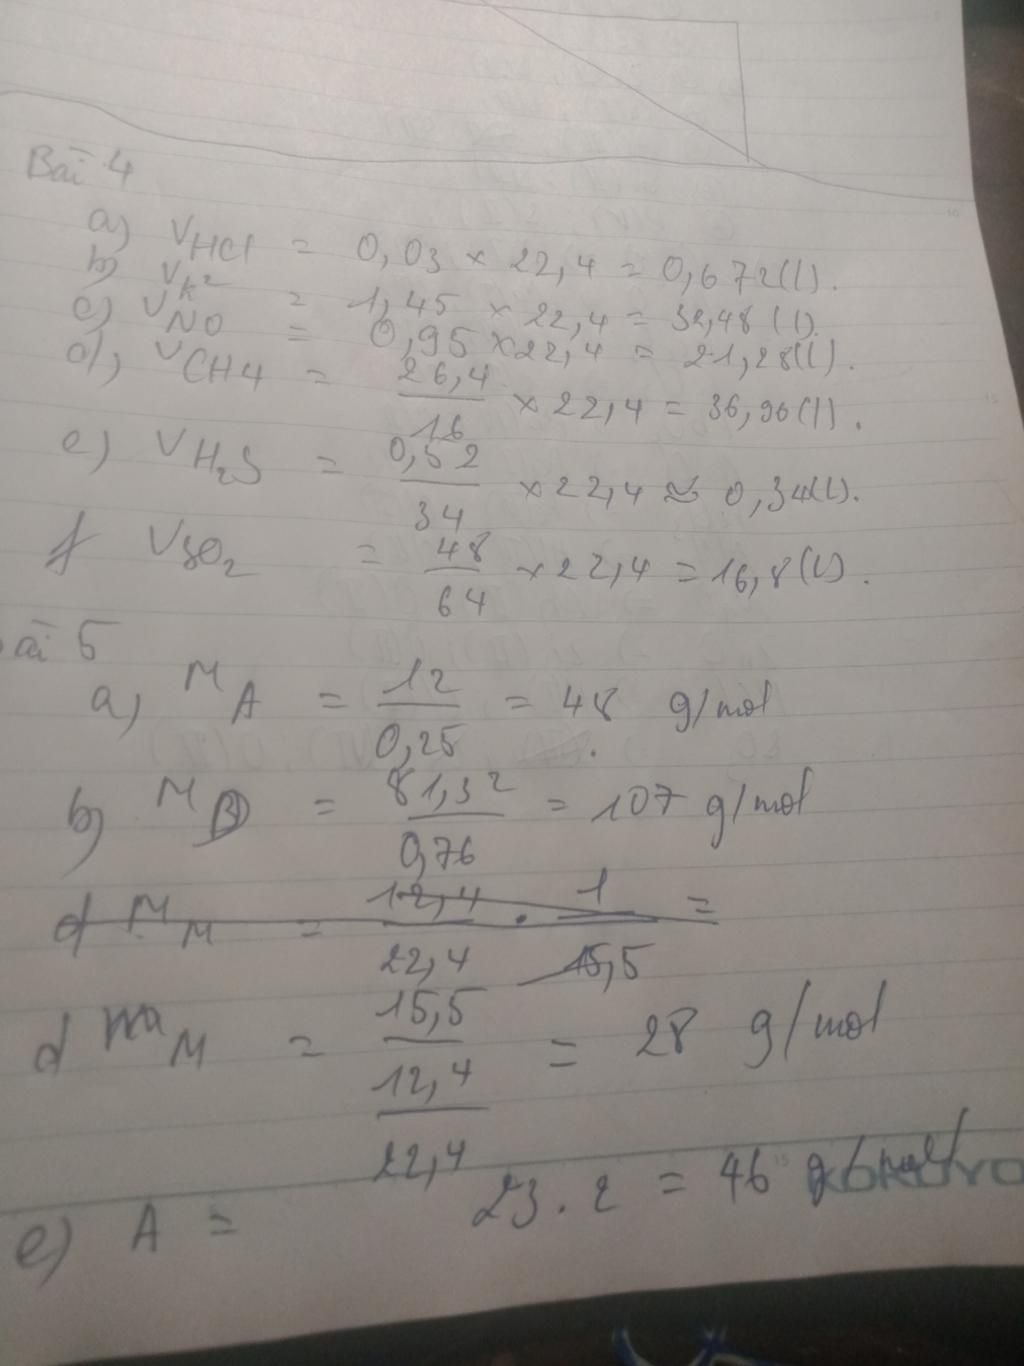 Bài 4
a) VHCl = 0,03 × 22,4 = 0,672(l).
b) VK2 = 1,45 × 22,4 = 32,48 (l).
c) VNO = 0,95 × 22,4 = 21,28(l).
d), VCH4 = 26,4/16 × 22,4 = 36,96(l).
e) VH2S = 0,52/34 × 22,4 ≈ 0,34(l).
f VSO2 = 48/64 × 22,4 = 16,8(l).
ài 5
a) MA = 12/0,25 = 48 g/mol
b) MB = 81,32/0,76 = 107 g/mol
d MM = 12,4/22,4 . 1/15,5 =
d M = 15,5/(12,4/22,4) = 28 g/mol
e) A = 23.2 = 46 g/mol